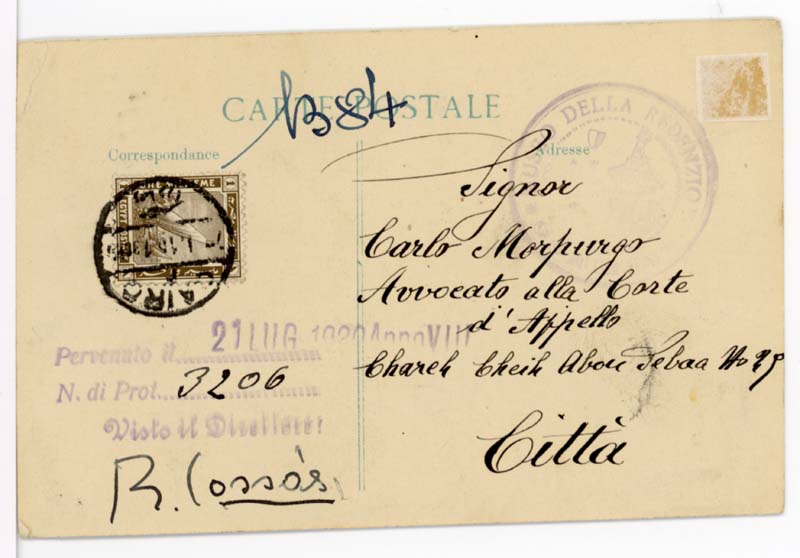 CARTE POSTALE
B 84
Correspondance
Adresse
DELLA REDENZIO
1 MILLIEME 1
CAIRO
Signor
Carlo Morpurgo
Avvocato alla Corte
d'Appello
Chareh Cheih Abou Sebaa No
Città
21 LUG 1930 Anno VIII
Pervenuto il
N. di Prot. 3206
Visto il Direttore:
R. Cossás